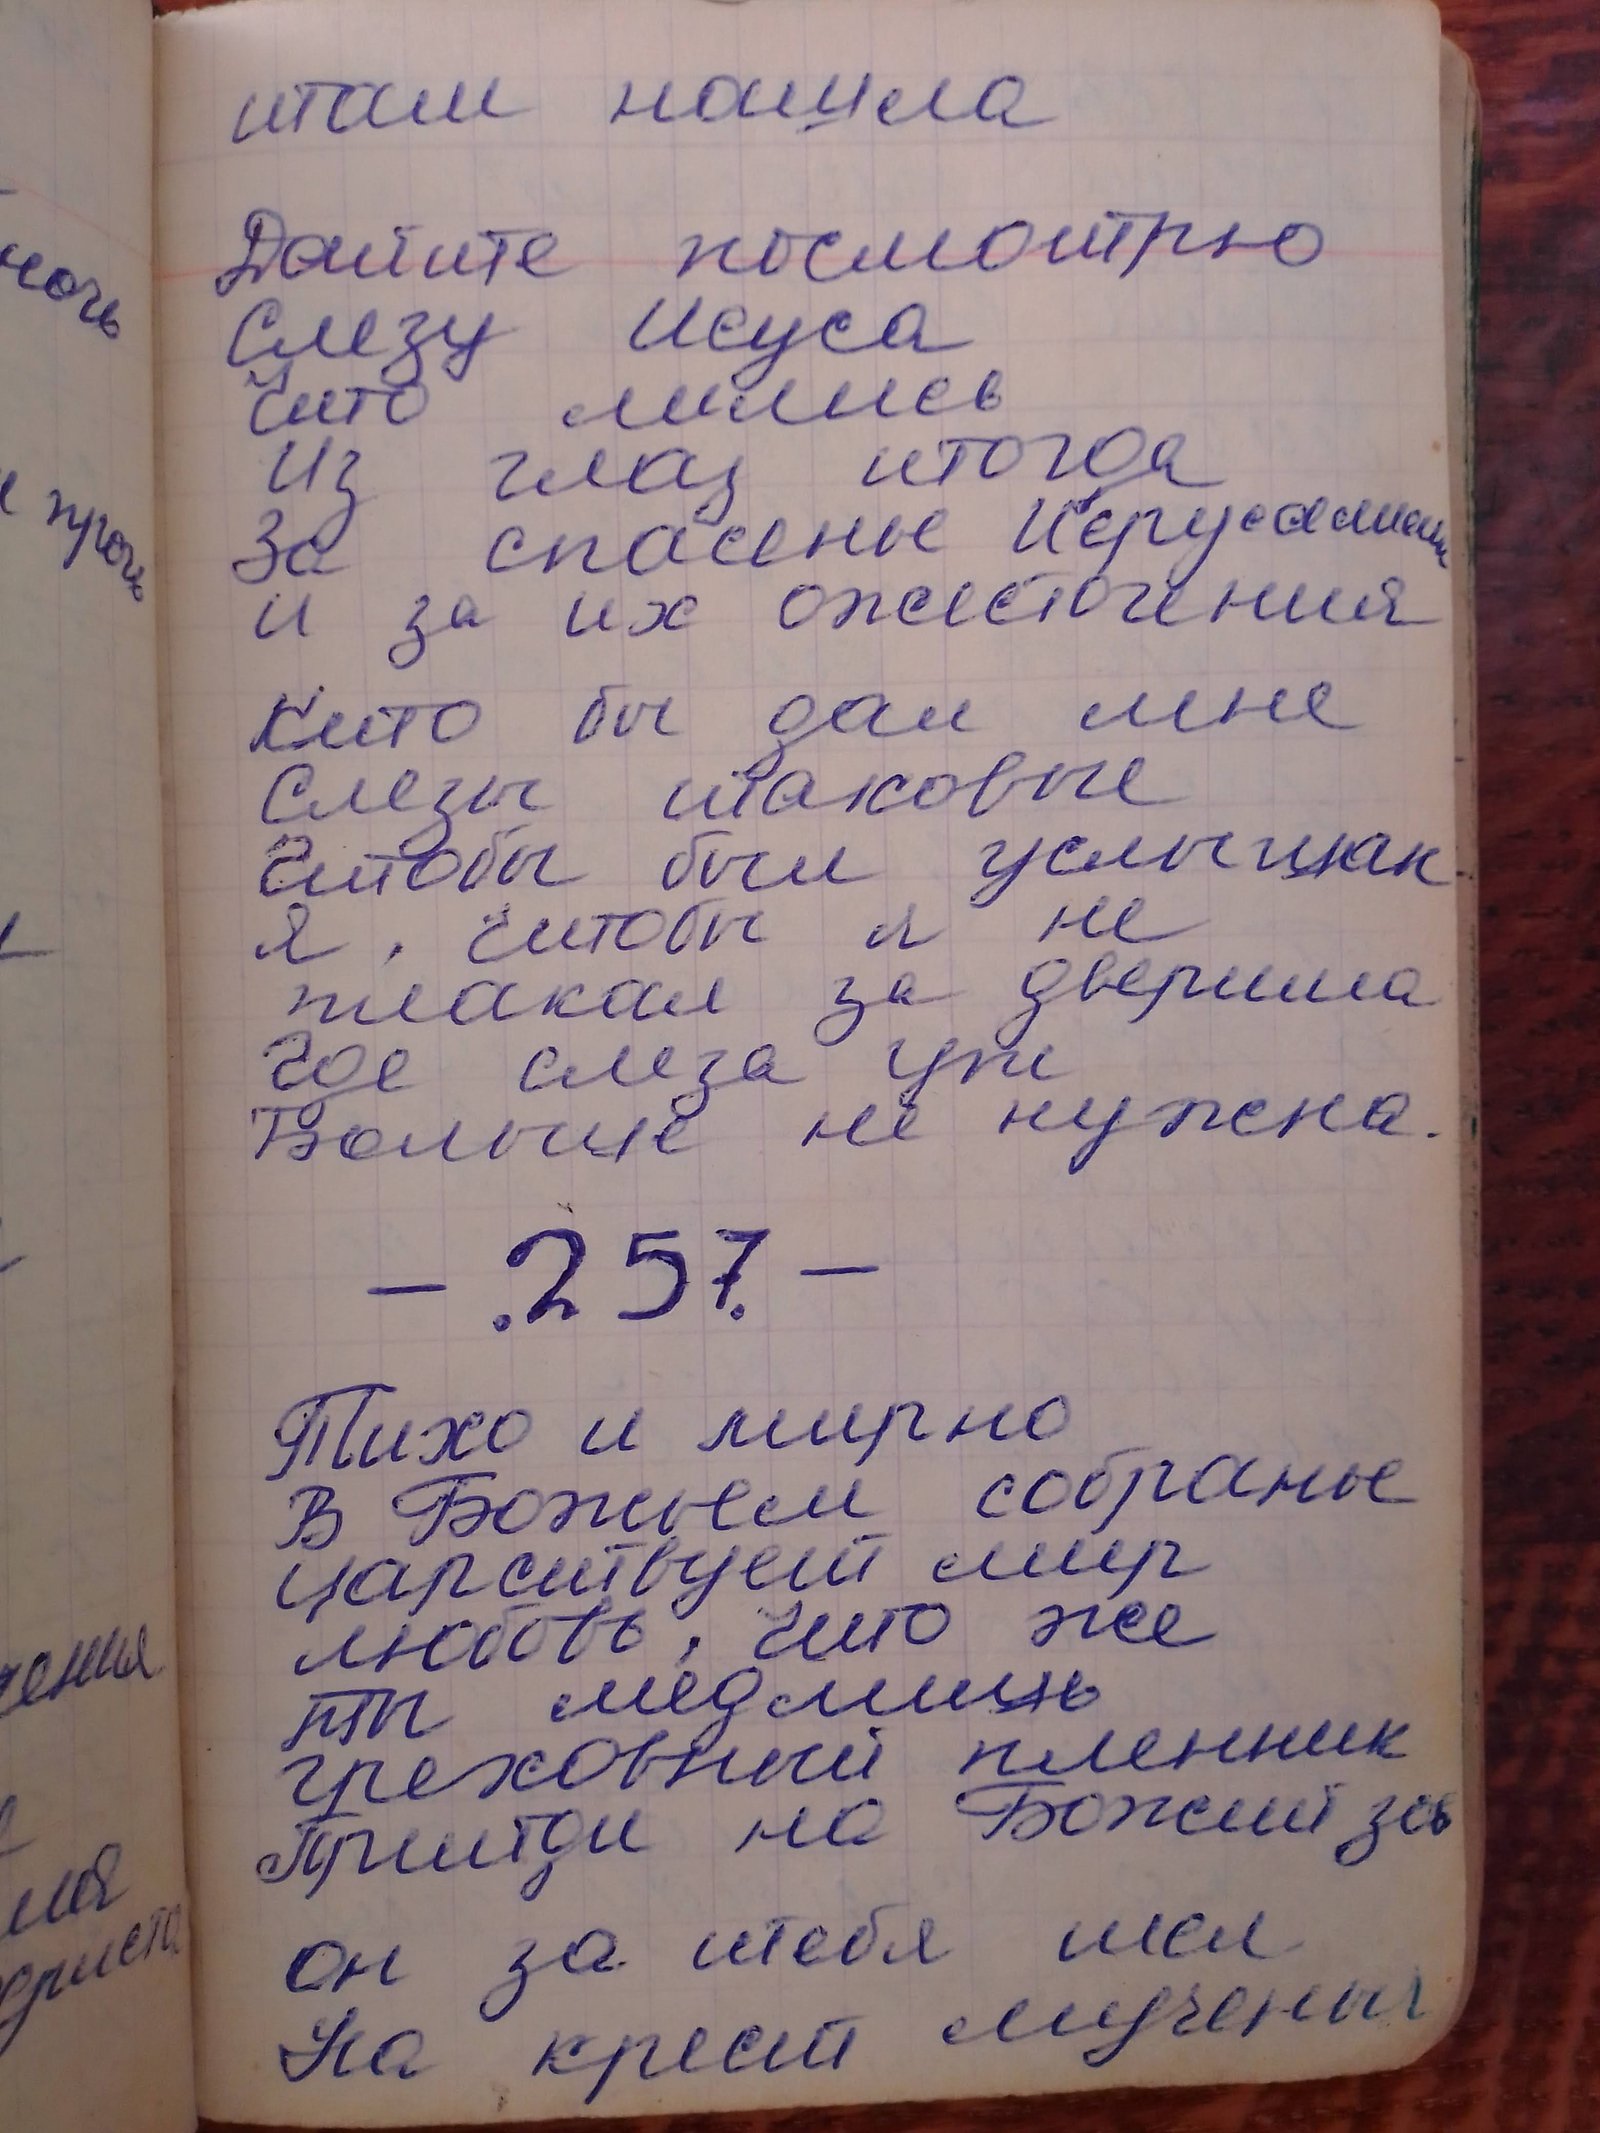 там нашла
Дайте посмотрю
Слезу Исуса
Что лились
Из глаз тогда
За спасенье Иерусалим
и за их ожесточения
Кто бы дал мне
Слезы таковые
Чтобы был услышан
Я, чтобы я не
плакал за дверима
Где слеза уж
Больше не нужна.
- .257. -
Тихо и мирно
В Божьем собранье
царствует мир
любовь, что же
ты медлишь
греховный пленник
Прийди на Божий зов
он за тебя шел
На крест мученья
ночь
прочь
чения